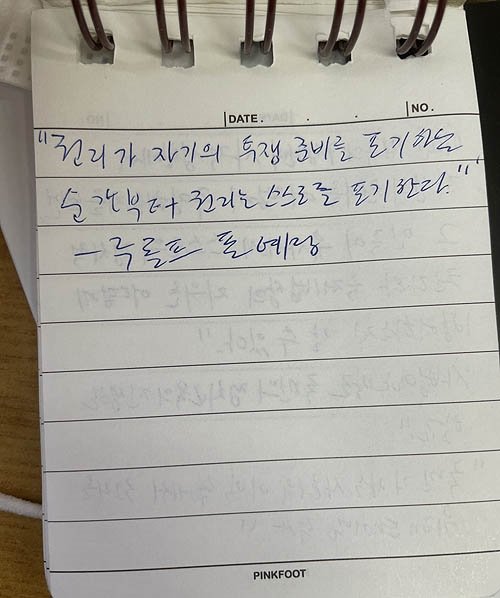 DATE . . . NO.
"권리가 자기의 투쟁 준비를 포기하는
순간부터 권리는 스스로를 포기한다."
- 루돌프 폰 예링
PINKFOOT